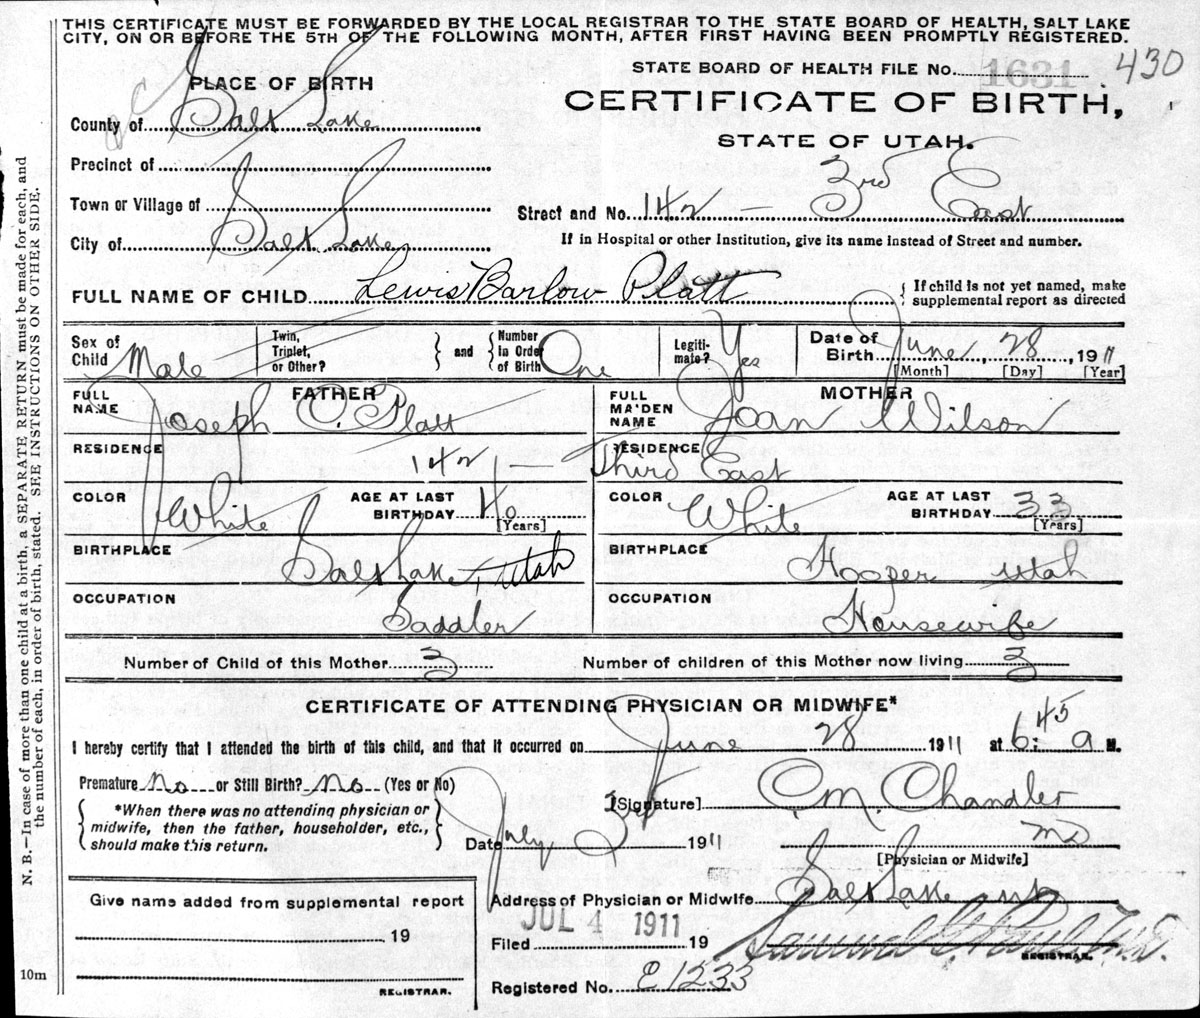 THIS CERTIFICATE MUST BE FORWARDED BY THE LOCAL REGISTRAR TO THE STATE BOARD OF HEALTH, SALT LAKE
CITY, ON OR BEFORE THE 5TH OF THE FOLLOWING MONTH, AFTER FIRST HAVING BEEN PROMPTLY REGISTERED.
STATE BOARD OF HEALTH FILE No. 1631 430
PLACE OF BIRTH
CERTIFICATE OF BIRTH,
County of Salt Lake
STATE OF UTAH.
Precinct of
Town or Village of
Street and No. 142 — 3rd East
City of Salt Lake
If in Hospital or other Institution, give its name instead of Street and number.
FULL NAME OF CHILD Lewis Barlow Platt { If child is not yet named, make
supplemental report as directed
Sex of Child Male
Twin, Triplet, or Other? } and { Number in Order of Birth One
Legiti- mate? Yes
Date of Birth June, 28, 1911
[Month] [Day] [Year]
FATHER
FULL NAME Joseph O. Platt
MOTHER
FULL MA'DEN NAME Joan Wilson
RESIDENCE 142 — Third East
RESIDENCE
COLOR White AGE AT LAST BIRTHDAY 40 [Years]
COLOR White AGE AT LAST BIRTHDAY 33 [Years]
BIRTHPLACE Salt Lake, Utah
BIRTHPLACE Hooper Utah
OCCUPATION Saddler
OCCUPATION Housewife
Number of Child of this Mother 3 Number of children of this Mother now living 3
CERTIFICATE OF ATTENDING PHYSICIAN OR MIDWIFE*
I hereby certify that I attended the birth of this child, and that it occurred on June 28 1911 at 6:45 a M.
Premature No or Still Birth? No (Yes or No)
{ *When there was no attending physician or
midwife, then the father, householder, etc.,
should make this return. }
[Signature] C. M. Chandler
Date July 3rd 1911 MD
[Physician or Midwife]
Address of Physician or Midwife Salt Lake
Give name added from supplemental report
19
REGISTRAR.
JUL 4 1911
Filed 19
Samuel G. Paul M.D.
REGISTRAR.
Registered No. C1233
10m
N. B.—In case of more than one child at a birth, a SEPARATE RETURN must be made for each, and
the number of each, in order of birth, stated. SEE INSTRUCTIONS ON OTHER SIDE.